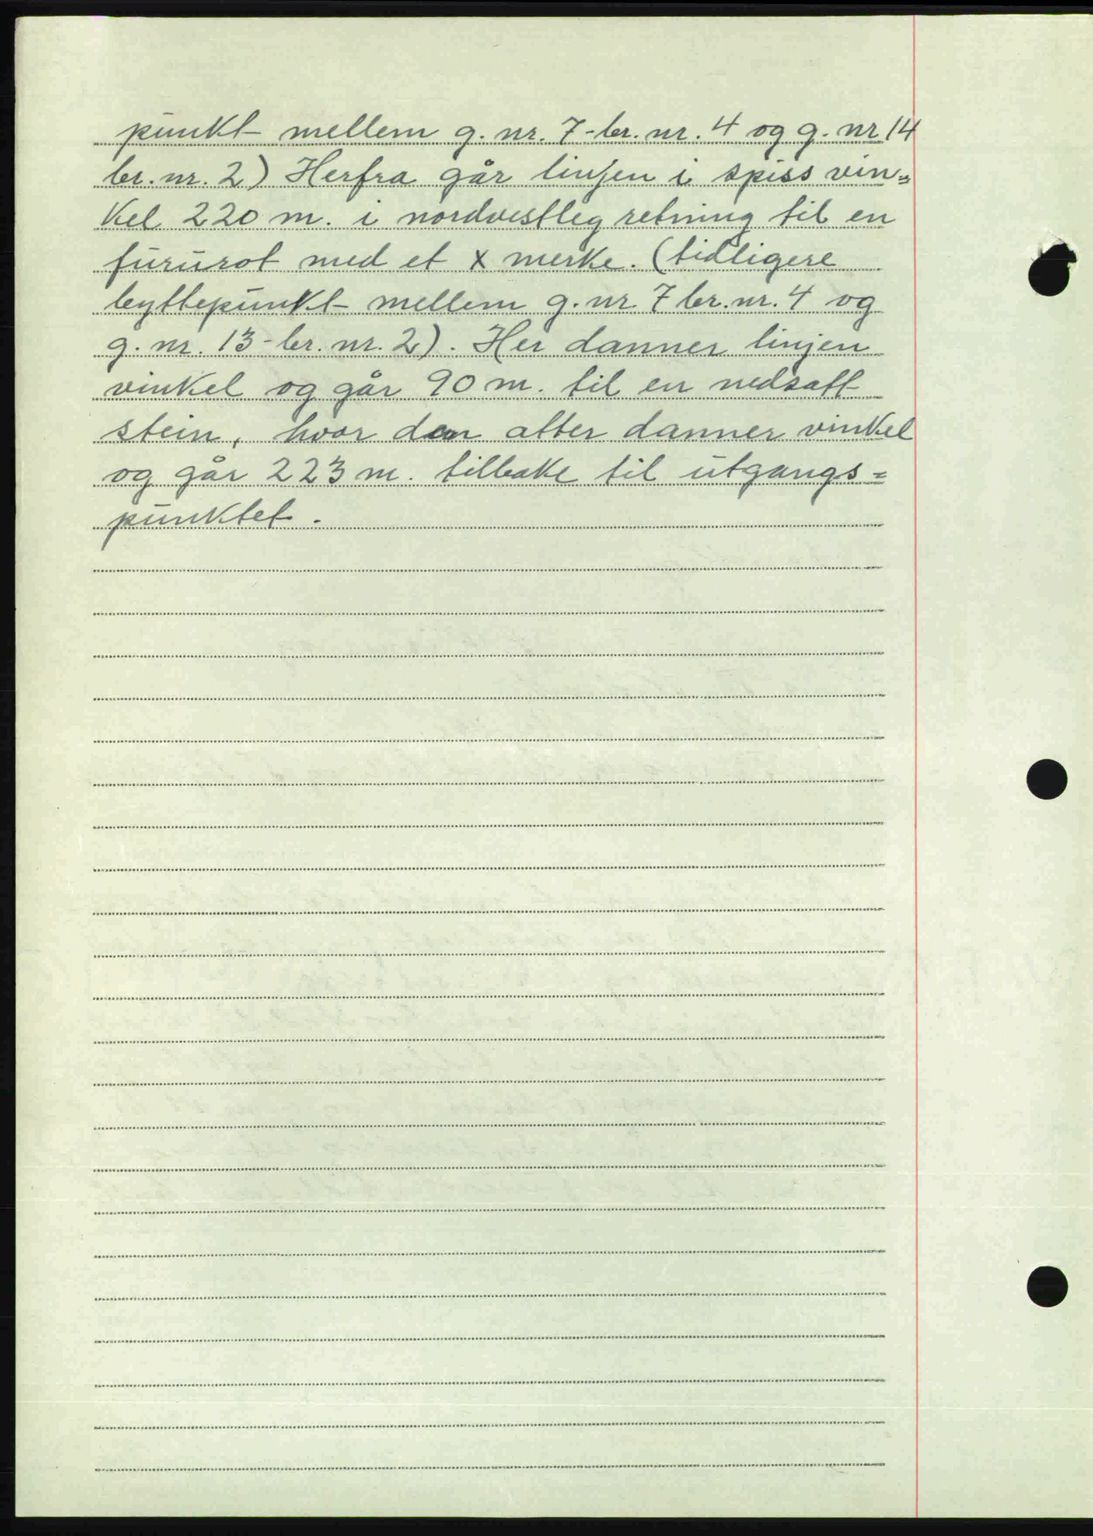 punkt mellem g. nr. 7 - br. nr. 4 og g. nr 14
br. nr. 2) Herfra går linjen i spiss vin=
kel 220 m. i nordvestleg retning til en
fururot med et x merke. (tidligere
byttepunkt mellem g. nr 7 br. nr. 4 og
g. nr. 13 - br. nr. 2). Her danner linjen
vinkel og går 90 m. til en nedsatt
stein, hvor den atter danner vinkel
og går 223 m. tilbake til utgangs=
punktet.